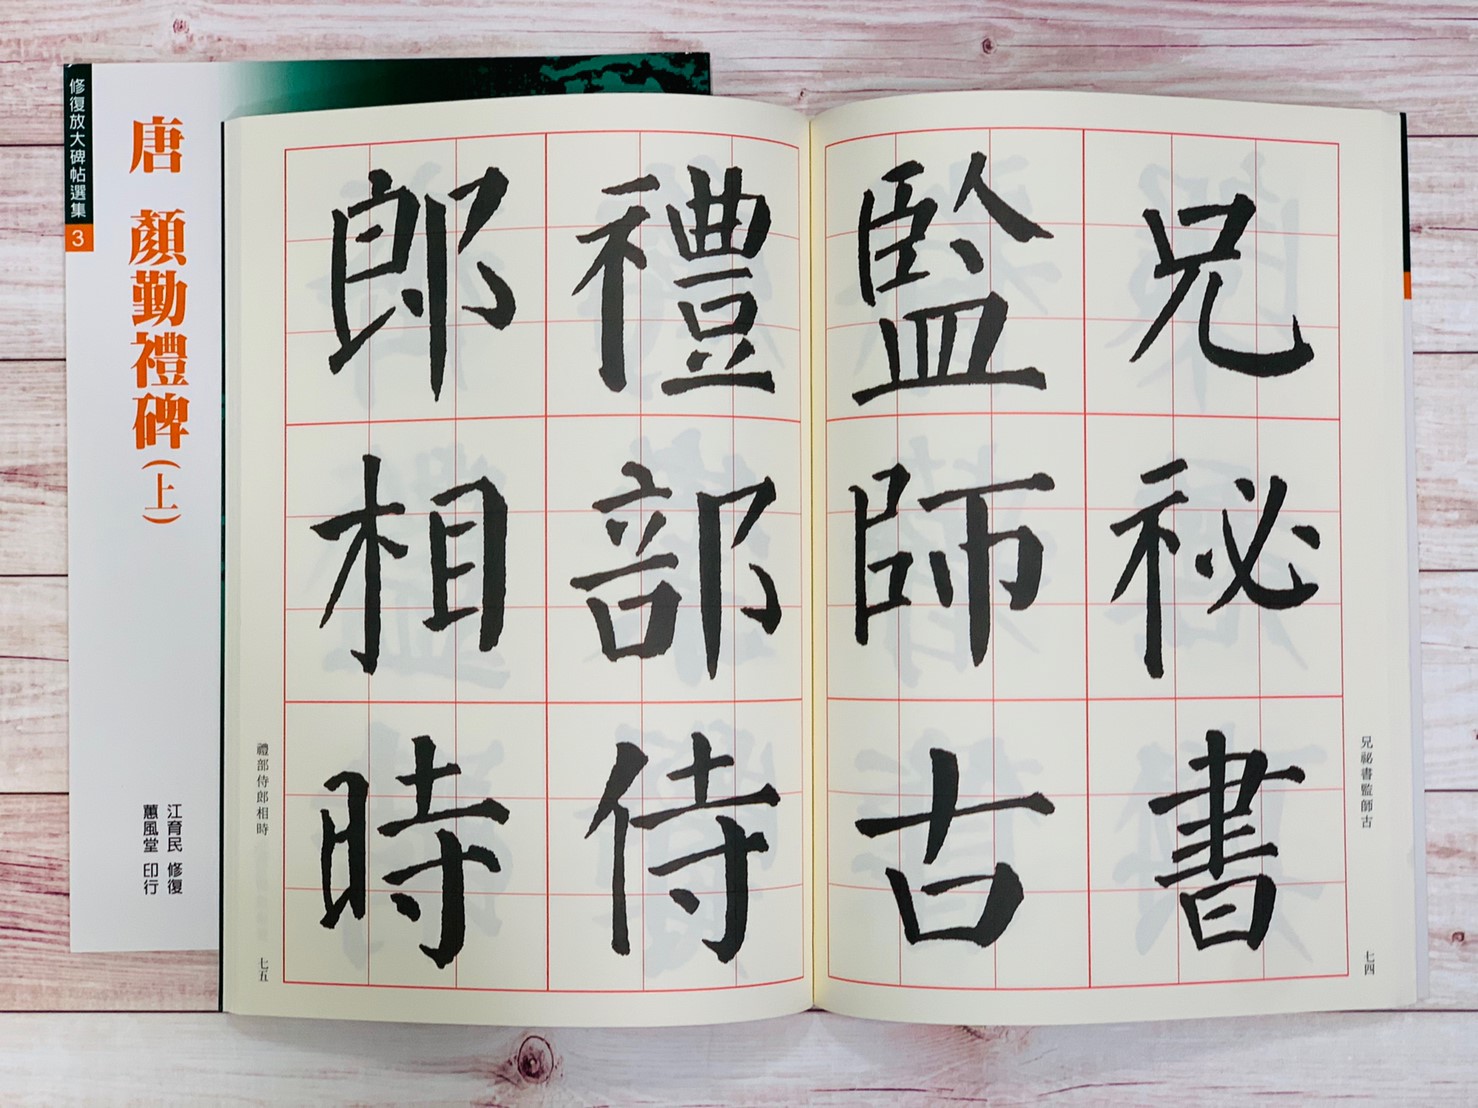 修復放大碑帖選集
3
唐 顏勤禮碑(上)
江育民 修復
蕙風堂 印行
兄祕書
監師古
兄祕書監師古
七四
禮部侍
郎相時
禮部侍郎相時
七五